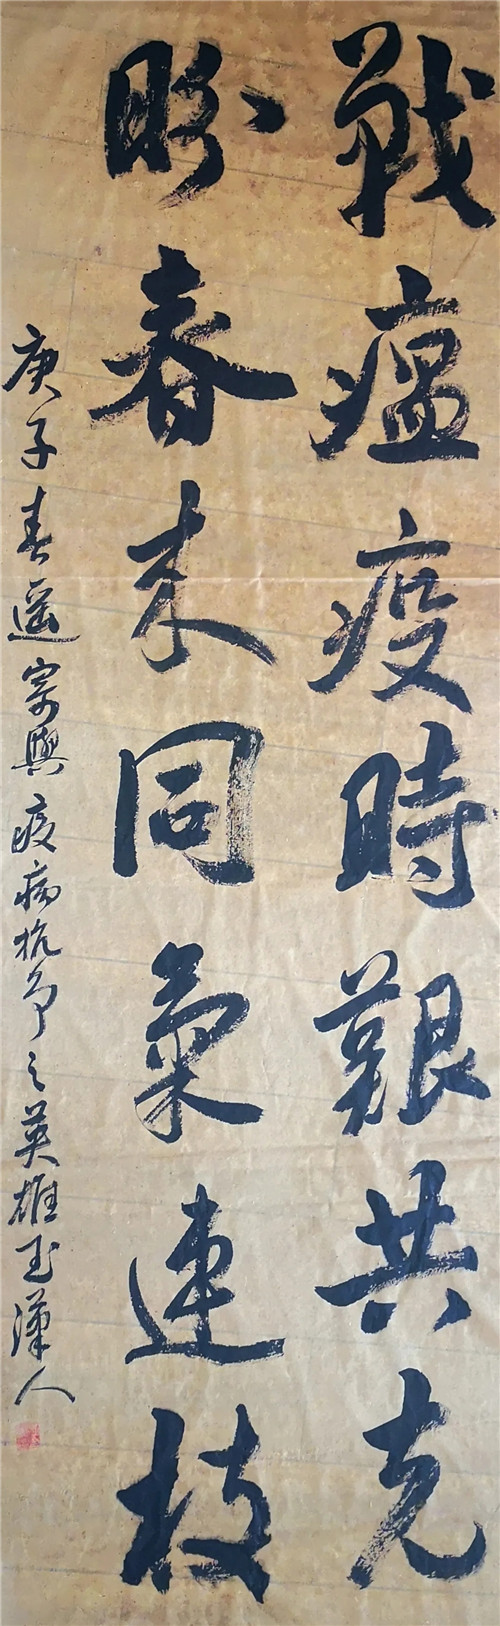 戰瘟疫時艱共克
盼春来同氣連枝
庚子春遥寄與疫病抗争之英雄玉漢人